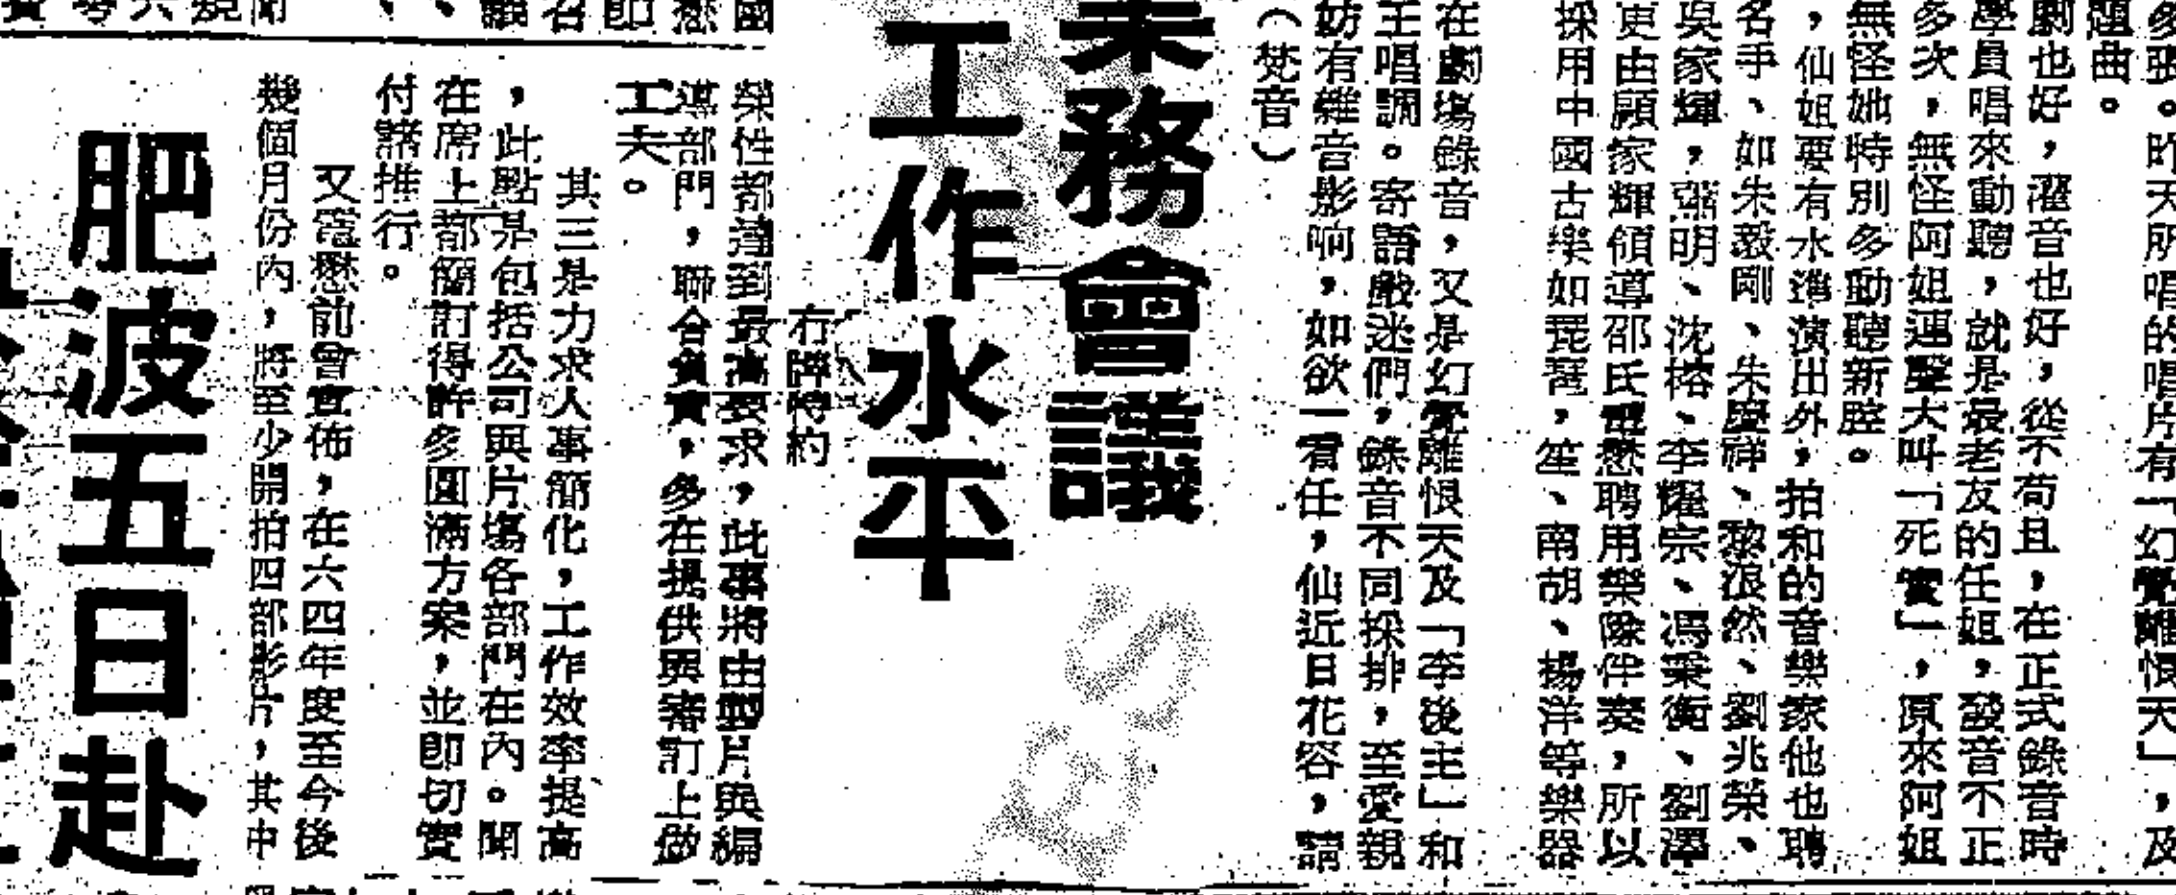 多張。昨天所唱的唱片有「幻覺離恨天」，及
題曲。
劇也好，灌音也好，從不苟且，在正式錄音時
學員唱來動聽，就是最老友的任姐，發音不正
多次，無怪阿姐連聲大叫「死實」，原來阿姐
無怪她特別多動聽新腔。
，仙姐要有水準演出外，拍和的音樂家他也聘
名手、如朱毅剛、朱慶祥、黎浪然、劉兆榮、
吳家輝，張明、沈榕、李耀宗、馮秉衡、劉澤
更由顧家輝領導邵氏電懋聘用樂隊伴奏，所以
採用中國古樂如琵琶，笙、南胡、楊洋等樂器
在劇塲錄音，又是幻覺離恨天及「李後主」和
主唱調。寄語戲迷們，錄音不同採排，至愛親
妨有雜音影响，如欲一看任，仙近日花容，請
（梵音）
業務會議
工作水平
有牌特約
榮性都達到最高要求，此事將由製片與編
導部門，聯合負責，多在提供與審訂上做
工夫。
其三是力求人事簡化，工作效率提高
，此點是包括公司與片塲各部門在內。聞
在席上都簡訂得許多圓滿方案，並即切實
付諸推行。
又電懋前會宣佈，在六四年度至今後
幾個月份內，將至少開拍四部影片，其中
肥波五日赴